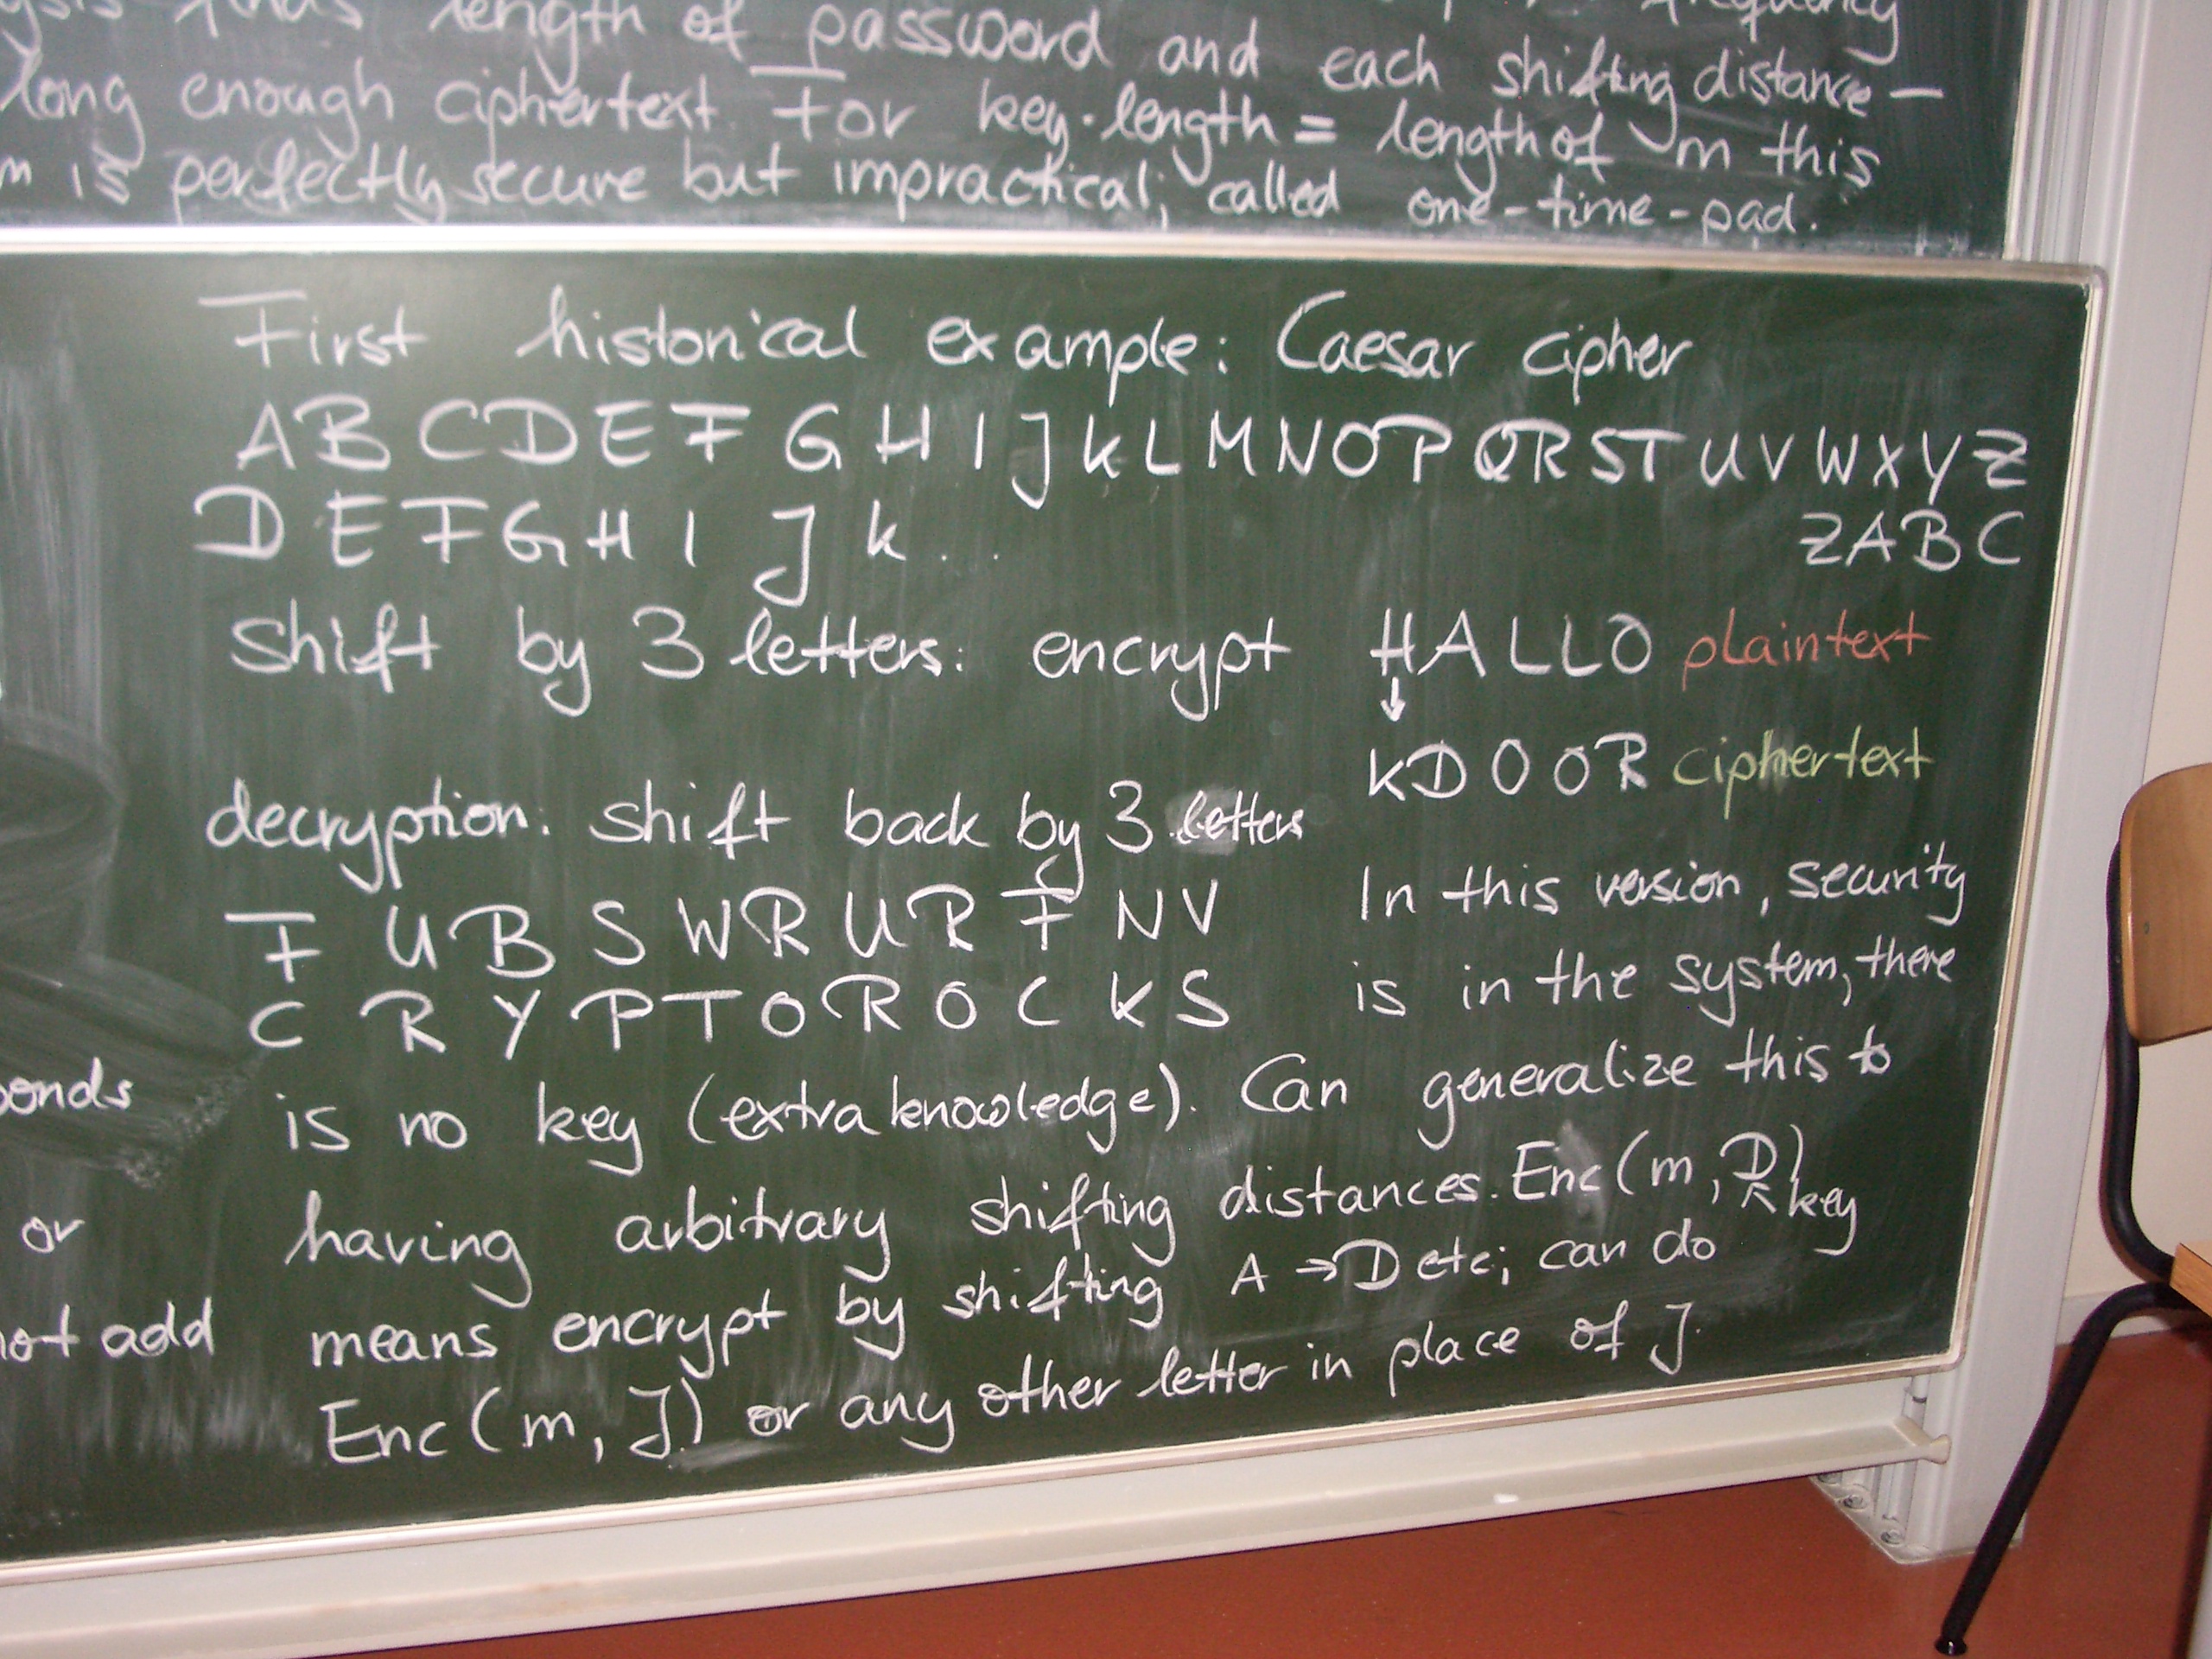 length of password and each shifting distance –
long enough ciphertext For key-length = length of m this
m is perfectly secure but impractical; called one-time-pad.
First historical example: Caesar cipher
A B C D E F G H I J K L M N O P Q R S T U V W X Y Z
D E F G H I J K ... Z A B C
Shift by 3 letters: encrypt HALLO plaintext
↓
KDOOR ciphertext
decryption: shift back by 3 letters
F U B S W R U R F N V
C R Y P T O R O C K S
In this version, security
is in the system, there
is no key (extra knowledge). Can generalize this to
having arbitrary shifting distances. Enc(m, D)
↖ key
means encrypt by shifting A → D etc; can do
Enc(m, J) or any other letter in place of J.
onds
or
not add